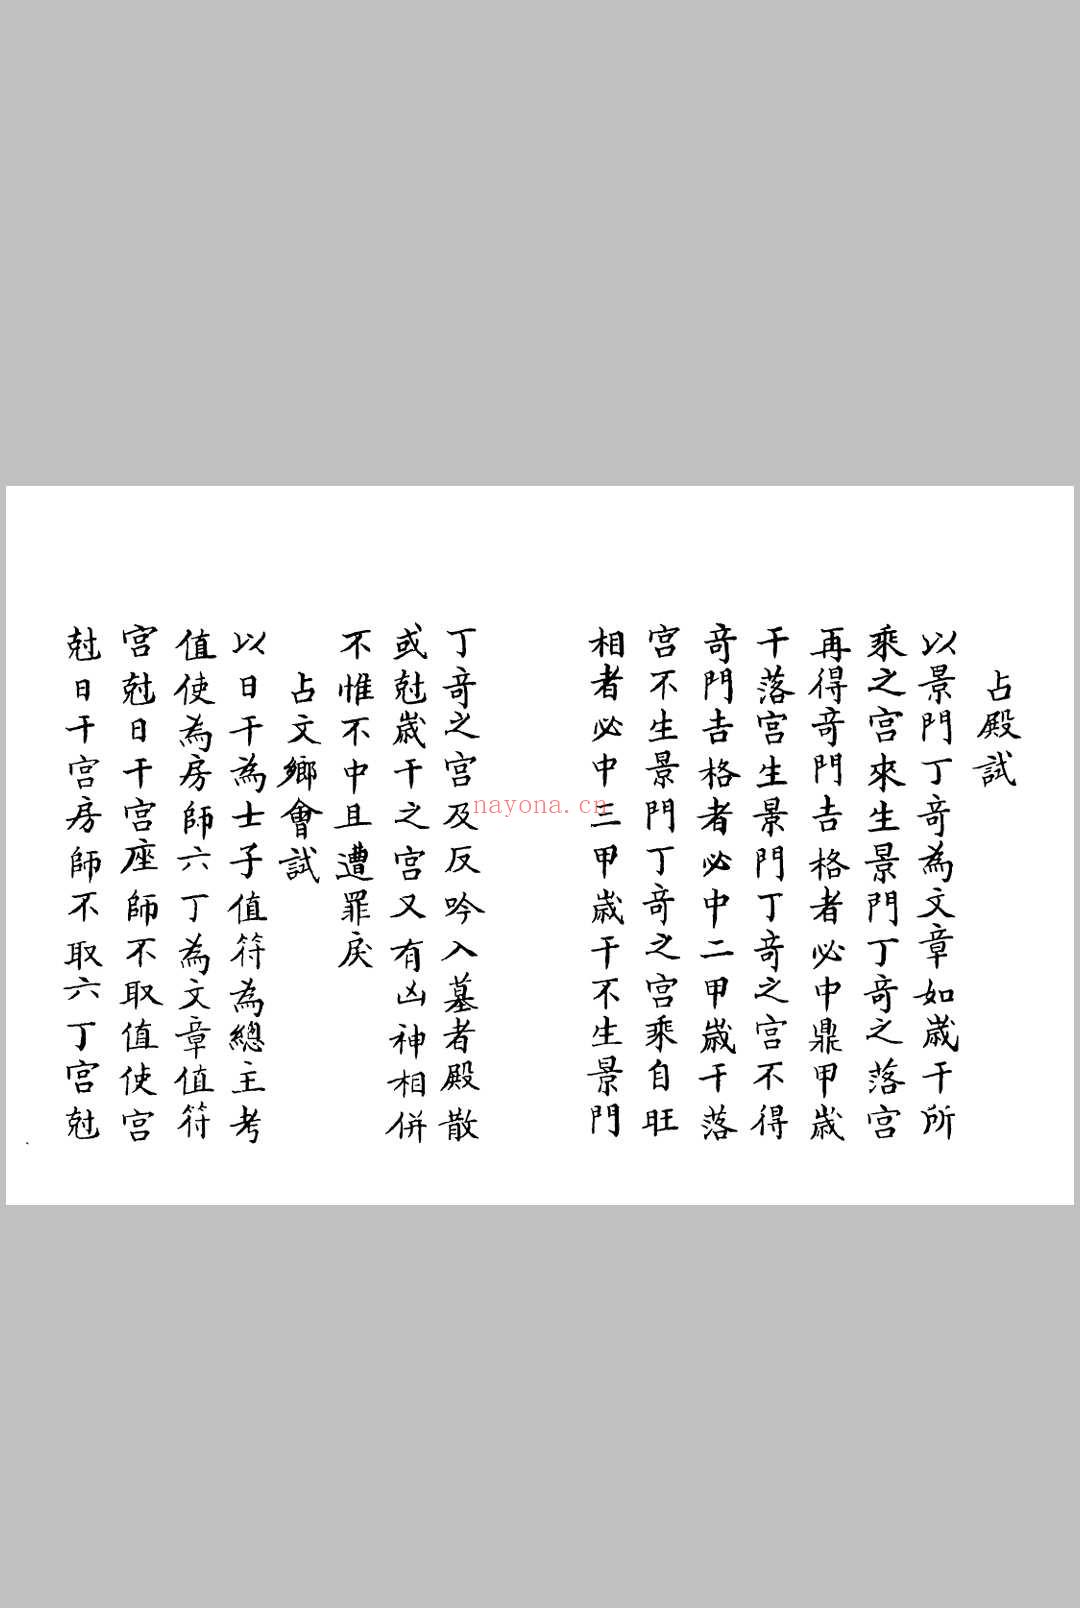 占殿試
以景門丁竒為文章如歲干所
乘之宮來生景門丁竒之落宮
再得竒門吉格者必中鼎甲歲
干落宮生景門丁竒之宮不得
竒門吉格者必中二甲歲干落
宮不生景門丁竒之宮乘自旺
相者必中三甲歲干不生景門
丁竒之宮及反吟入墓者殿散
或尅歲干之宮又有凶神相併
不惟不中且遭罪戾
占文鄉會試
以日干為士子值符為總主考
值使為房師六丁為文章值符
宮尅日干宮座師不取值使宮
尅日干宮房師不取六丁宮尅
nayona.cn